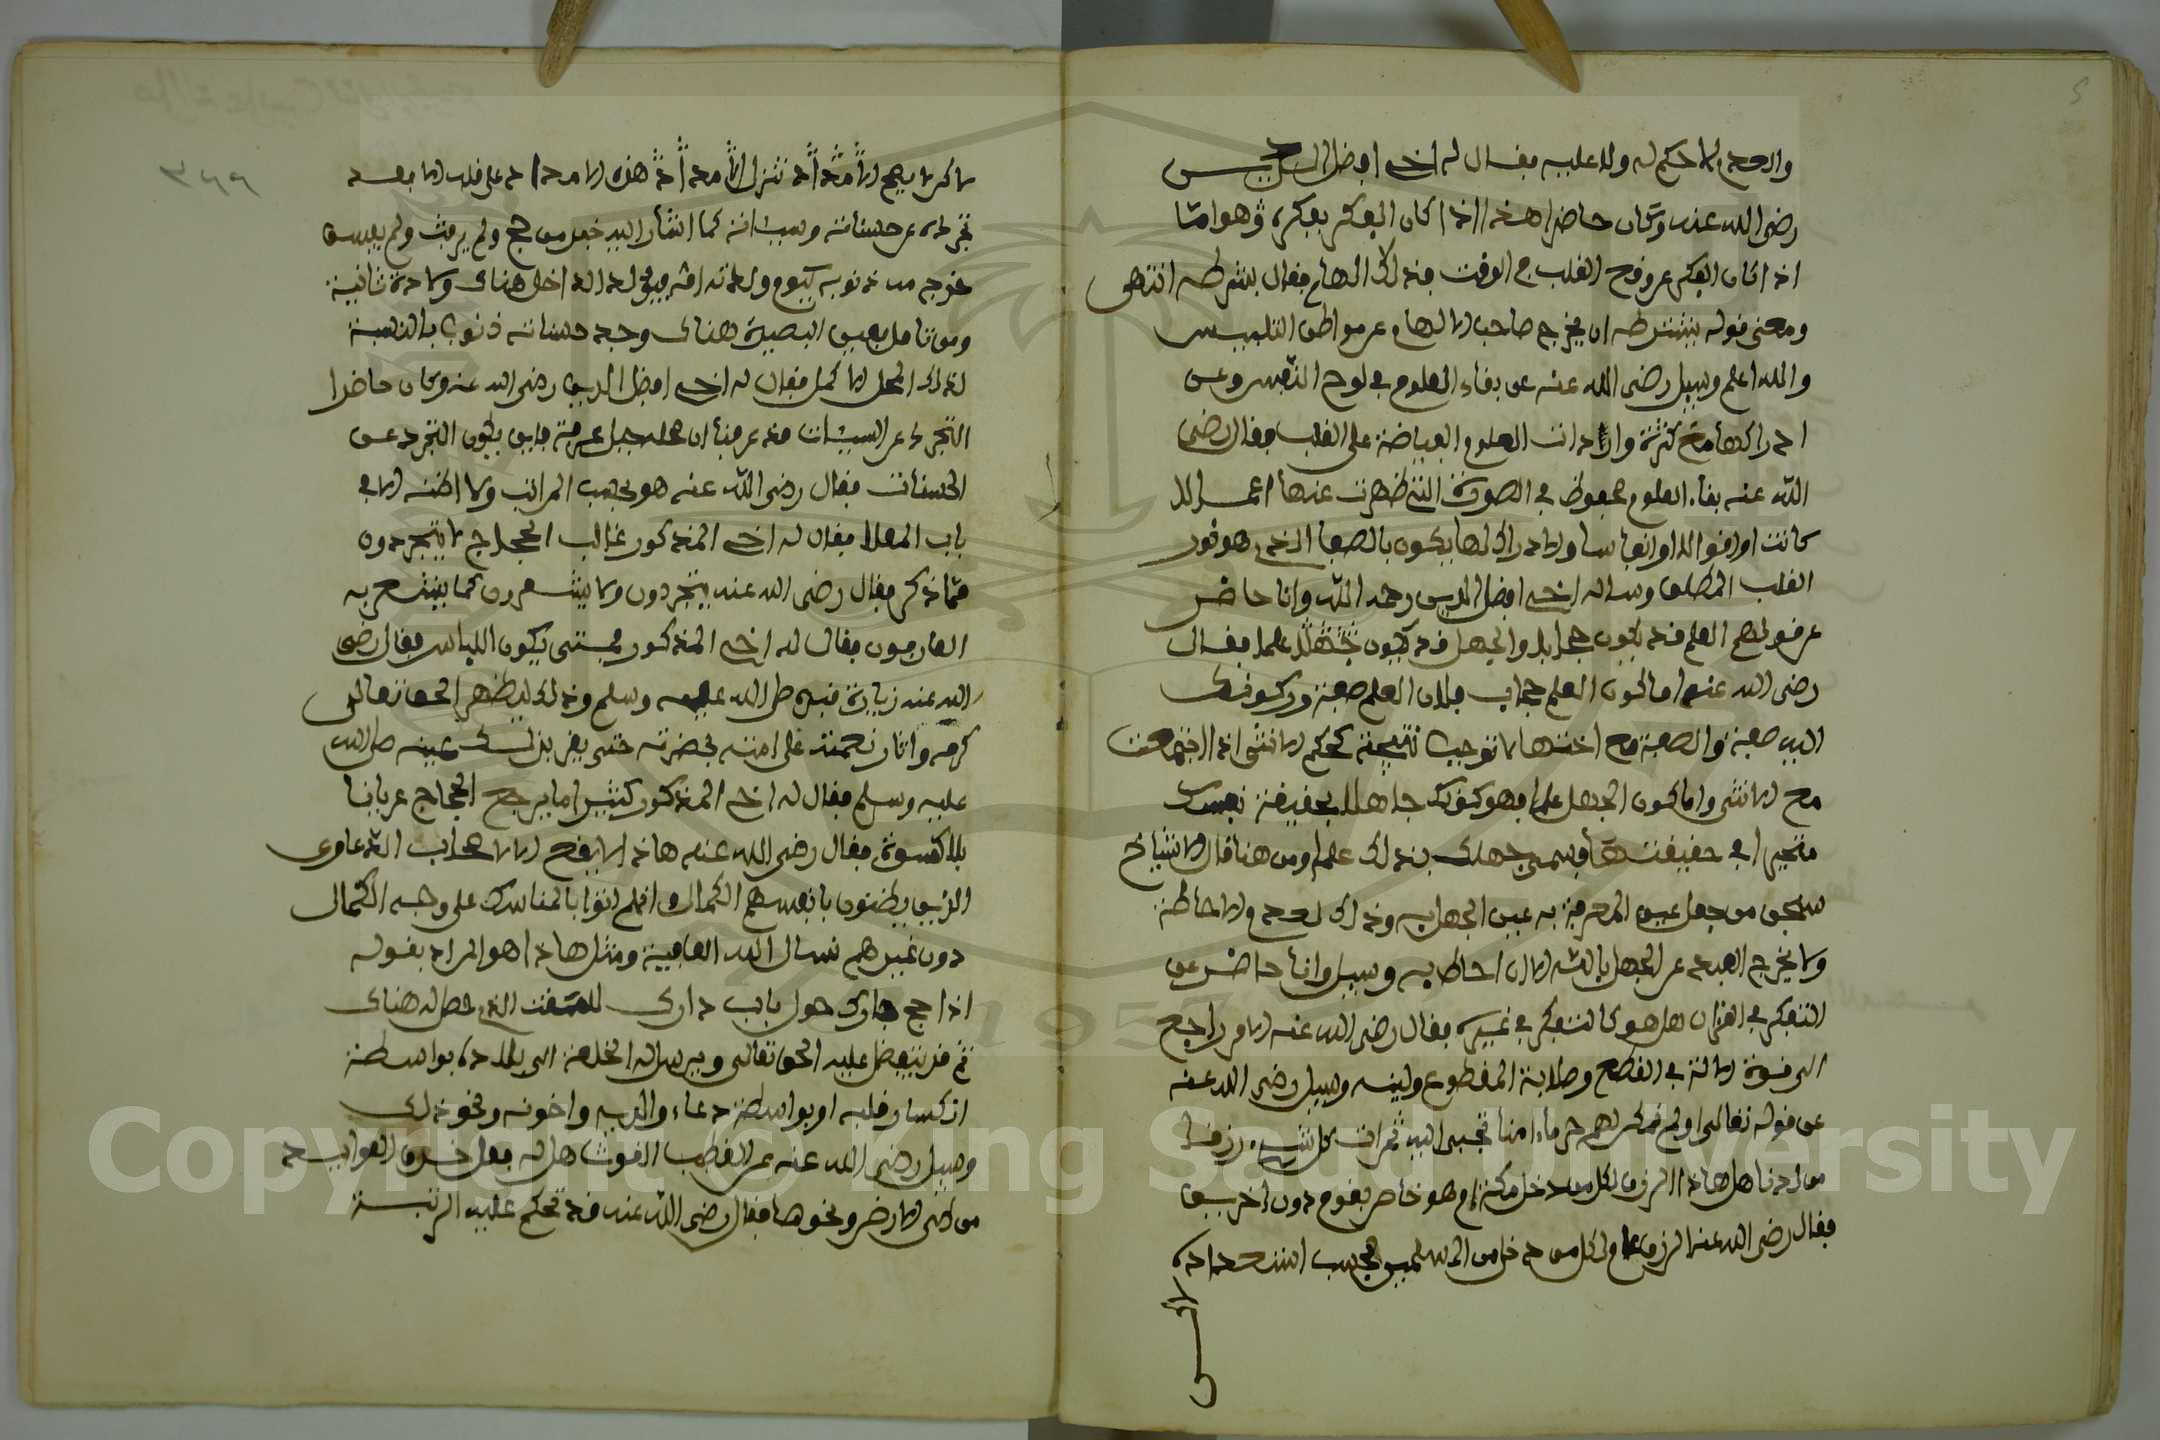 والعدم لا حكم له ولا عليه فقال له اخي افضل الدين
رضي الله عنه وكان حاضرا هذا اذا كان الفكر بفكرة وهو اما
اذا كان الفكر عن روح القلب في الوقت فذلك الهام فقال بشرطه انتهى
ومعنى قوله بشرطه ان يخرج صاحب الالهام عن مواطن التلبيس
والله اعلم وسيل رضي الله عنه عن بقاء العلوم في لوح النفس وعن
ادراكها مع كثرة واردات العلوم الفياضة على القلب فقال رضي
الله عنه بقاء العلوم محفوظ في الصورة التي ظهرت عنها اعمالا
كانت او اقوالا او انفاسا والادراك لها يكون بالصفا الذي هو نور
القلب المطلق وساله اخي افضل الدين رحمه الله وانا حاضر
عن قولهم العلم قد يكون حجابا والجهل قد يكون علما فقال
رضي الله عنه اما كون العلم حجاب فلان العلم صفة وركونك
اليه صفة والصفة مع اختها لا توجب نتيجة كحكم الانثى اذا اجتمعت
مع الانثى واما كون الجهل علما فهو كونك جاهلا بحقيقة نفسك
متحيرا في حقيقتها فسمي جهلك بذلك علما ومن هنا قال الاشياخ
سبحن من جعل عين المعرفة به عين الجهل به وذلك لعدم الاحاطة
ولا يخرج العبد عن الجهل بالشيء الا ان احاط به وسيل وانا حاضر عن
التفكر في القران هل هو كالتفكر في غيره فقال رضي الله عنه الامر راجع
الى قوة الالة في القطع وصلابة المقطوع ولينه وسيل رضي الله عنه
عن قوله تعالى اولم نمكن لهم حرما امنا تجبى اليه ثمرات كل شيء رزقا
من لدنا هل هاذا الرزق لكل من دخل مكة ام هو خاص بقوم دون اخرين
فقال رضي الله عنه الرزق عام لكل من دخل من المسلمين بحسب استعداده
لاكن لا يصح لامداد تنزل الامداد هذه الامداد على قلب الا بعد
تجرده عن حسناته وسيئاته كما اشار اليه خبر من حج ولم يرفث ولم يفسق
خرج من ذنوبه كيوم ولدته امه فيولد الداخل هناك ولادة ثانية
ومن تامل بعين البصيرة هناك وجد حسناته ذنوبا بالنسبة
لذلك المحل الاكمل فقال له اخي افضل الدين رضي الله عنه وكان حاضرا
التجرد عن السيئات قد عرفنا ان محله جبل عرفة فاين يكون التجرد عن
الحسنات فقال رضي الله عنه هو بحسب المراتب ولا اظنه الا في
باب المعلا فقال له اخي المذكور غالب الحجاج لا يتجردون
مما ذكر فقال رضي الله عنه يتجردون ولا يشعرون كما يشعر به
العارفون فقال له اخي المذكور فمتى يكون اللباس فقال رضي
الله عنه زيارة نبيه صلى الله عليه وسلم وذلك ليظهر الحق تعالى
كرمه واثار نعمته على امته بحضرته حتى يقر بذلك عينه صلى الله
عليه وسلم فقال له اخي المذكور كثيرا ما يرجع الحجاج عريانا
بلا كسوة فقال رضي الله عنه هاذا لا يقع الا لاصحاب الدعاوى
الذين يظنون بانفسهم الكمال وانهم اتوا بالمناسك على وجه الكمال
دون غيرهم نسال الله العافية ومثل هاذا هو المراد بقوله
اذا حج جارك حول باب دارك للمقت الذي حصل له هناك
ثم قد يتفضل عليه الحق تعالى ويرسل له الخلعة الى بلاده بواسطة
انكسار قلبه او بواسطة دعاء والديه واخوته ونحو ذلك
وسيل رضي الله عنه عن القطب الغوث هل له فعل خرق العوايد
من طي الارض ونحوها فقال رضي الله عنه قد تحكم عليه الرتبة